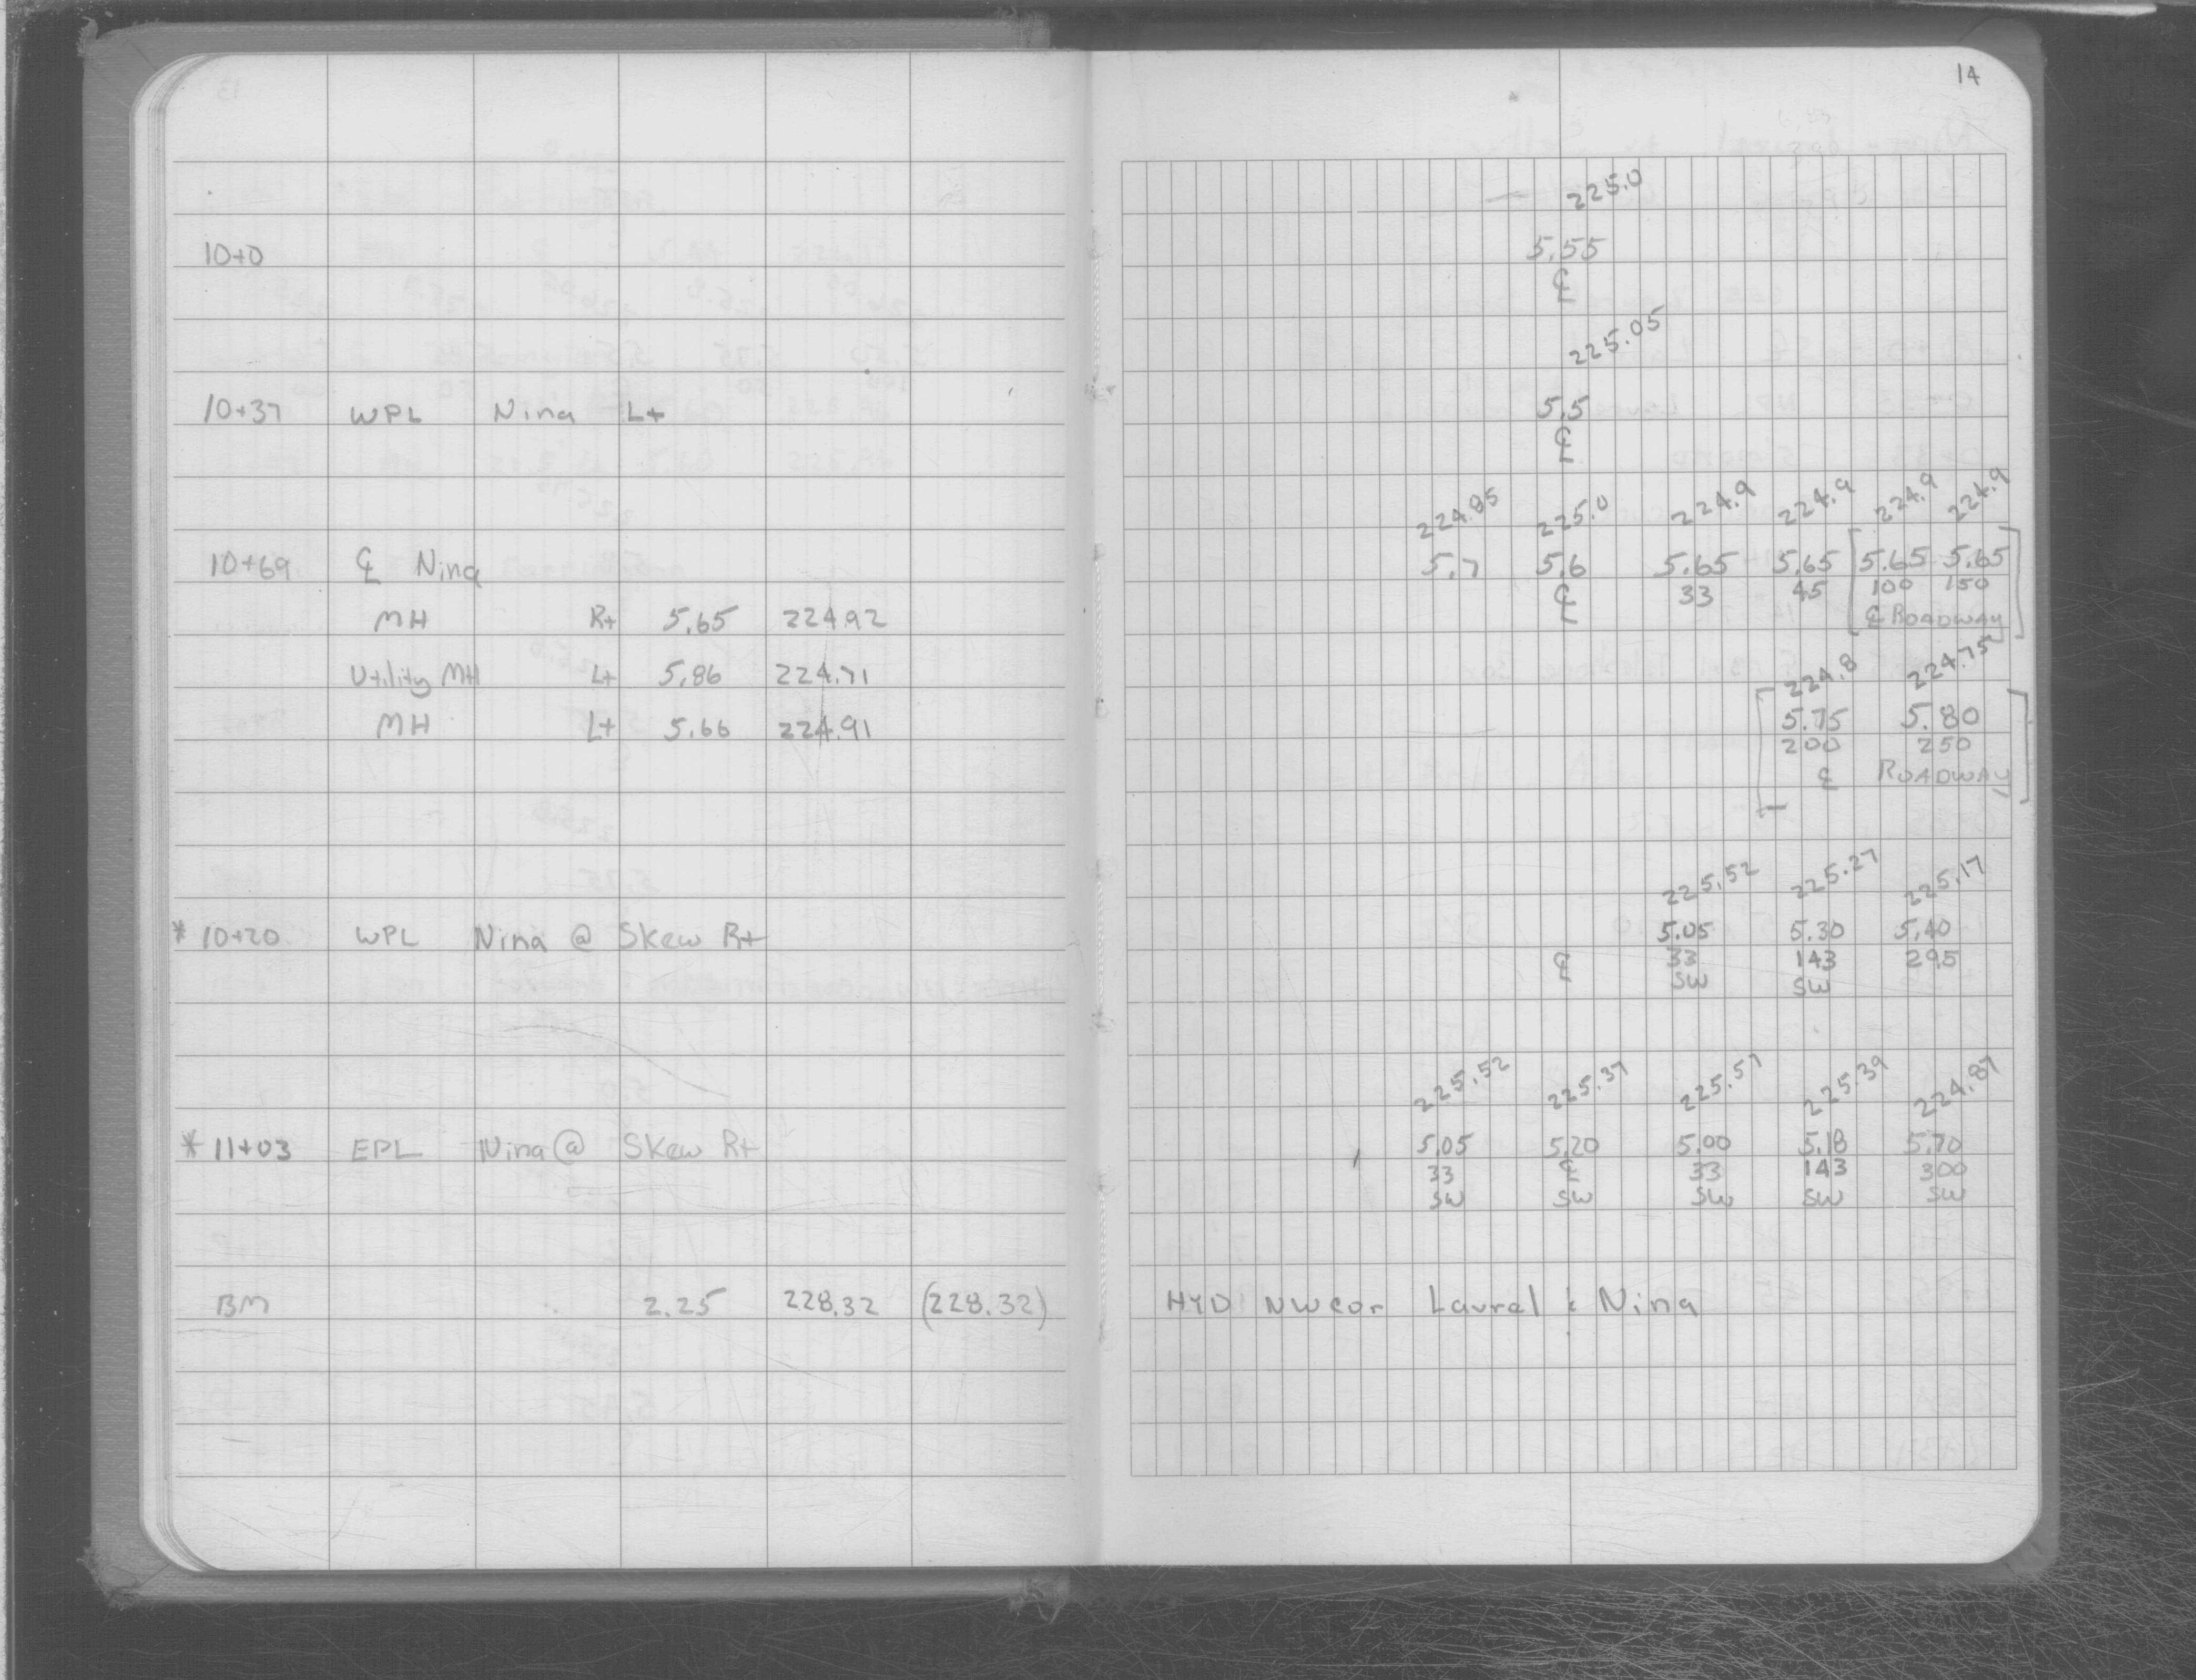 14
225.0
10+0 5.55
℄
225.05
10+37 WPL Nina Lt 5.5
℄
224.85 225.0 224.9 224.9 224.9 224.9
10+69 ℄ Nina 5.7 5.6 5.65 5.65 [5.65 5.65]
℄ 33 45 100 150
MH Rt 5.65 224.92 ℄ ROADWAY
224.8 224.75
Utility MH Lt 5.86 224.71
MH Lt 5.66 224.91 [5.75 5.80]
200 250
℄ ROADWAY
225.52 225.27 225.17
* 10+20 WPL Nina @ Skew Rt 5.05 5.30 5.40
℄ 33 143 295
SW SW
225.52 225.37 225.57 225.39 224.87
* 11+03 EPL Nina @ Skew Rt 5.05 5.20 5.00 5.18 5.70
33 ℄ 33 143 300
SW SW SW SW SW
BM 2.25 228.32 (228.32) HYD NW cor Laurel & Nina